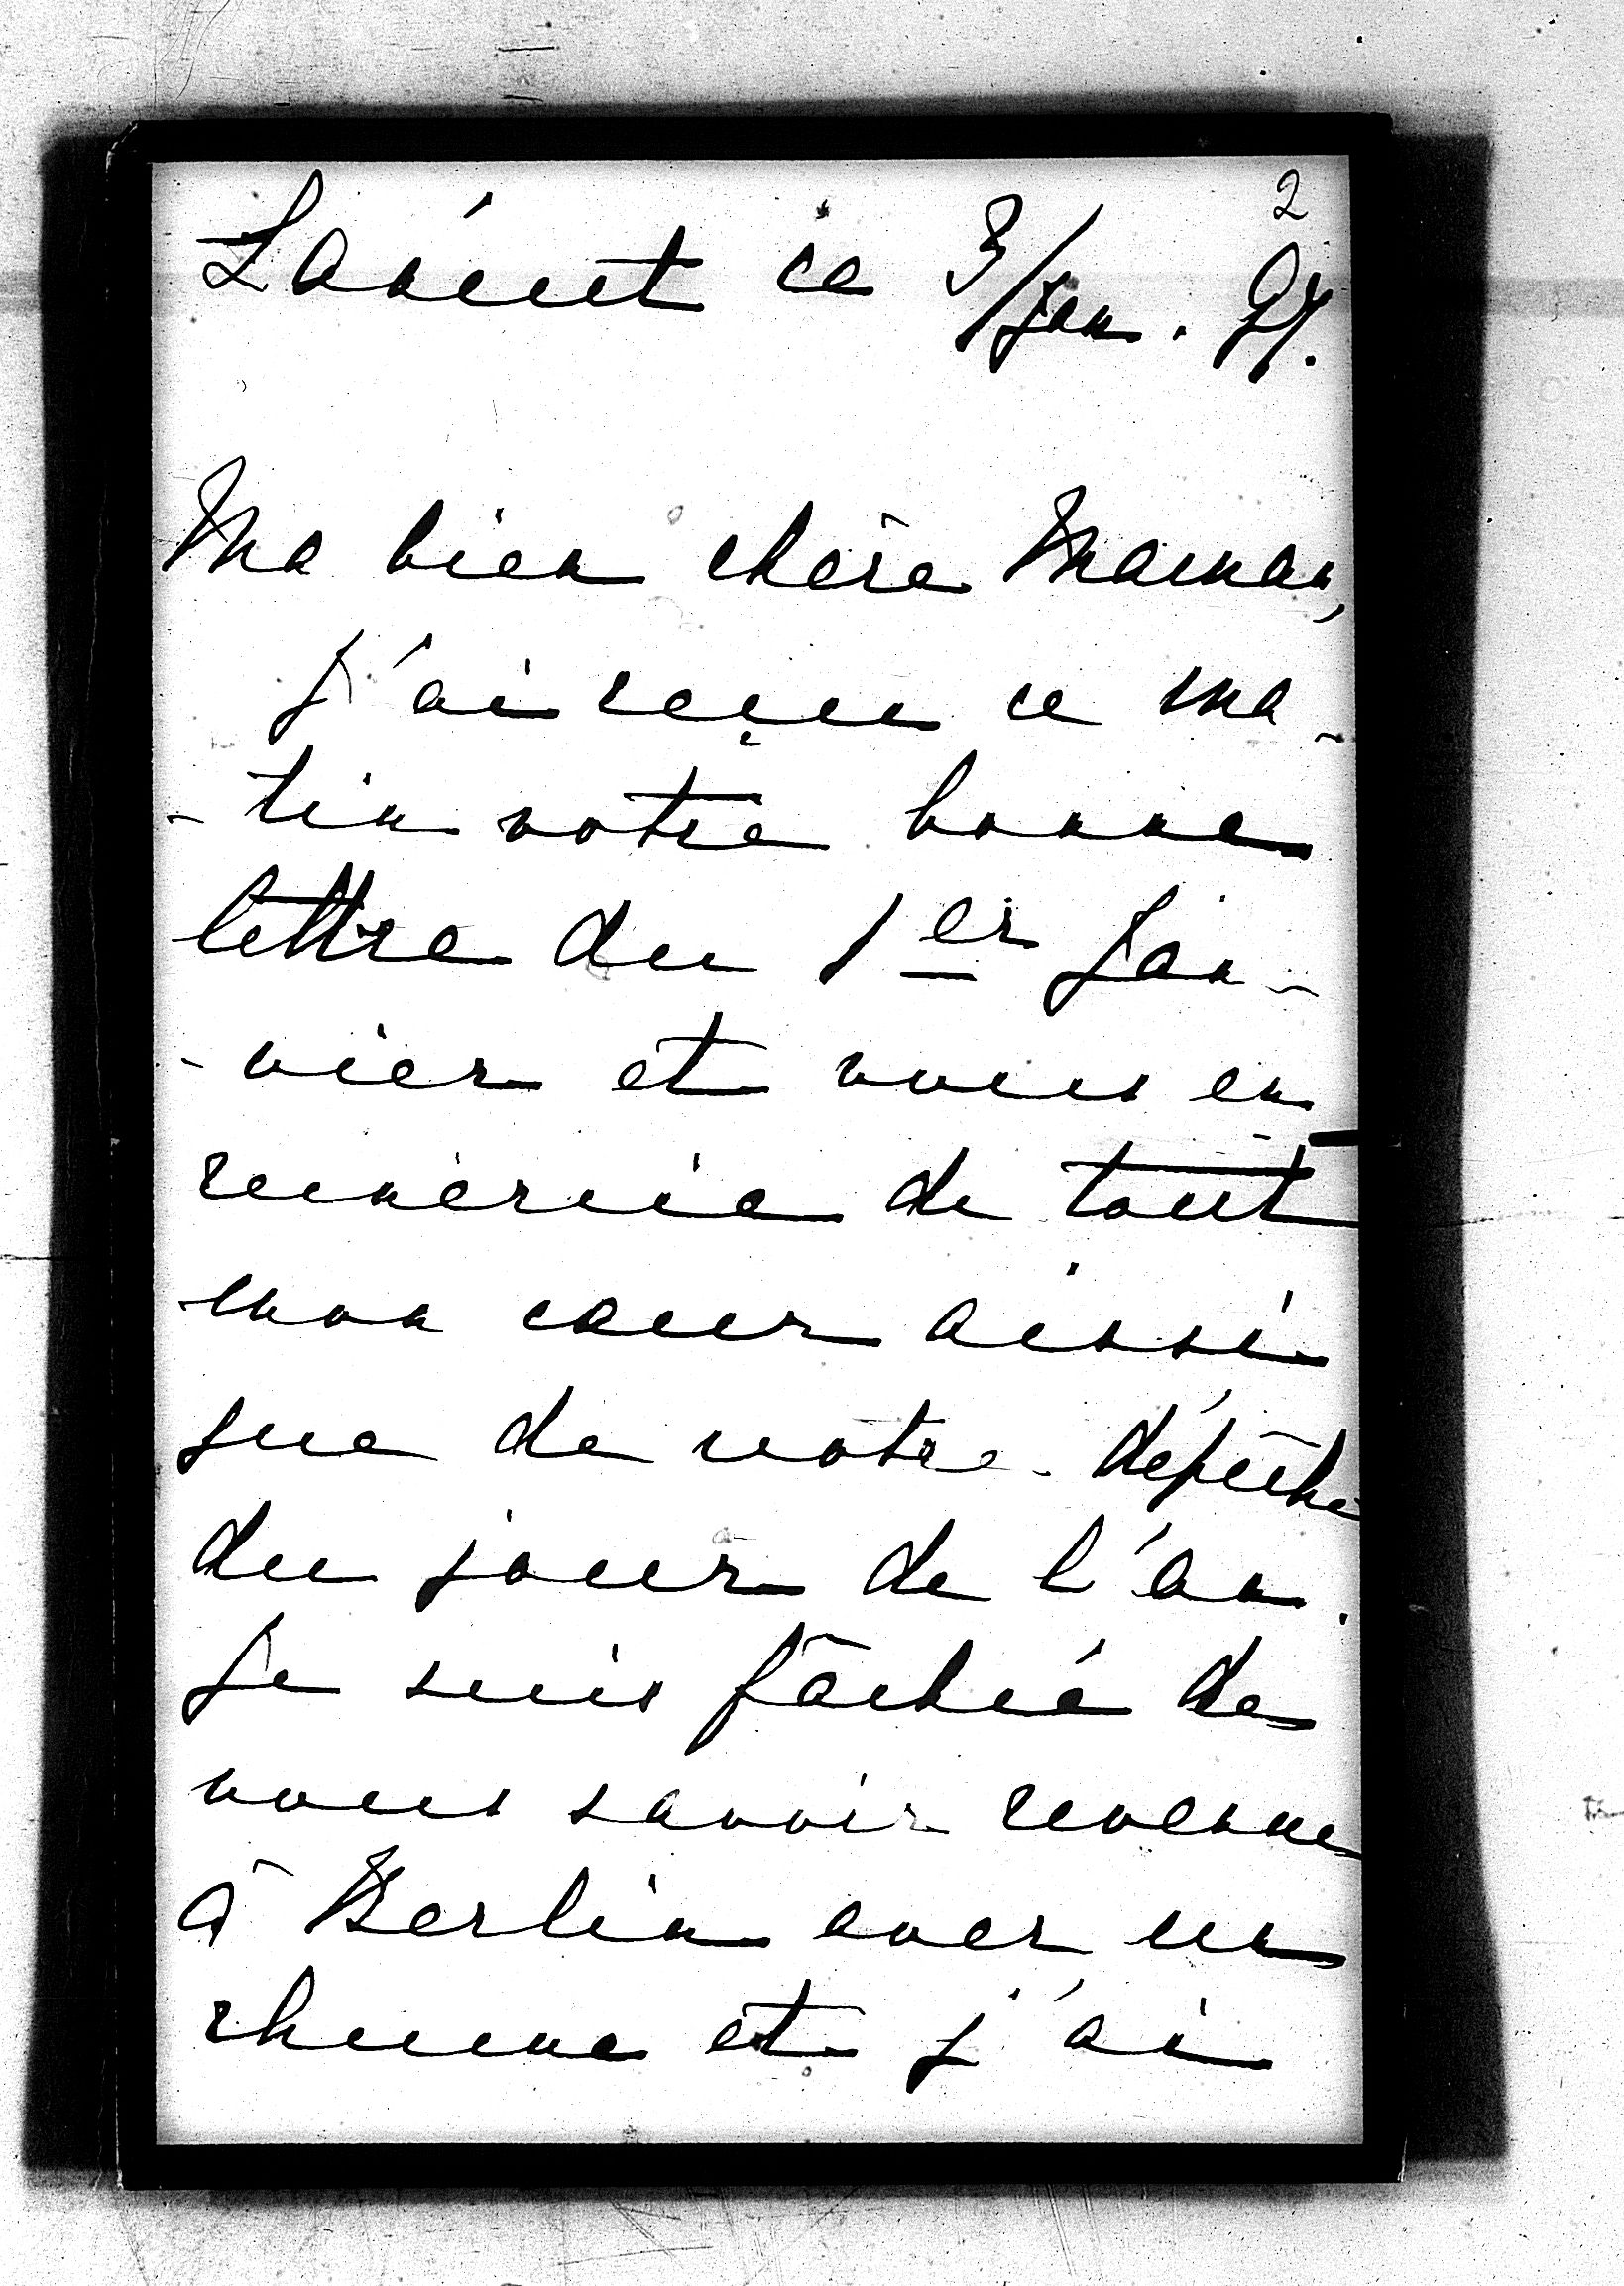 2
Łańcut ce 3/Jan. 97.
Ma bien chère Maman,
J'ai reçu ce ma-
-tin votre bonne
lettre du 1er Jan-
-vier et vous en
remercie de tout
mon cœur ainsi
que de votre dépêche
du jour de l'an.
Je suis fâché de
vous savoir revenue
à Berlin avec un
rhume et j'ai